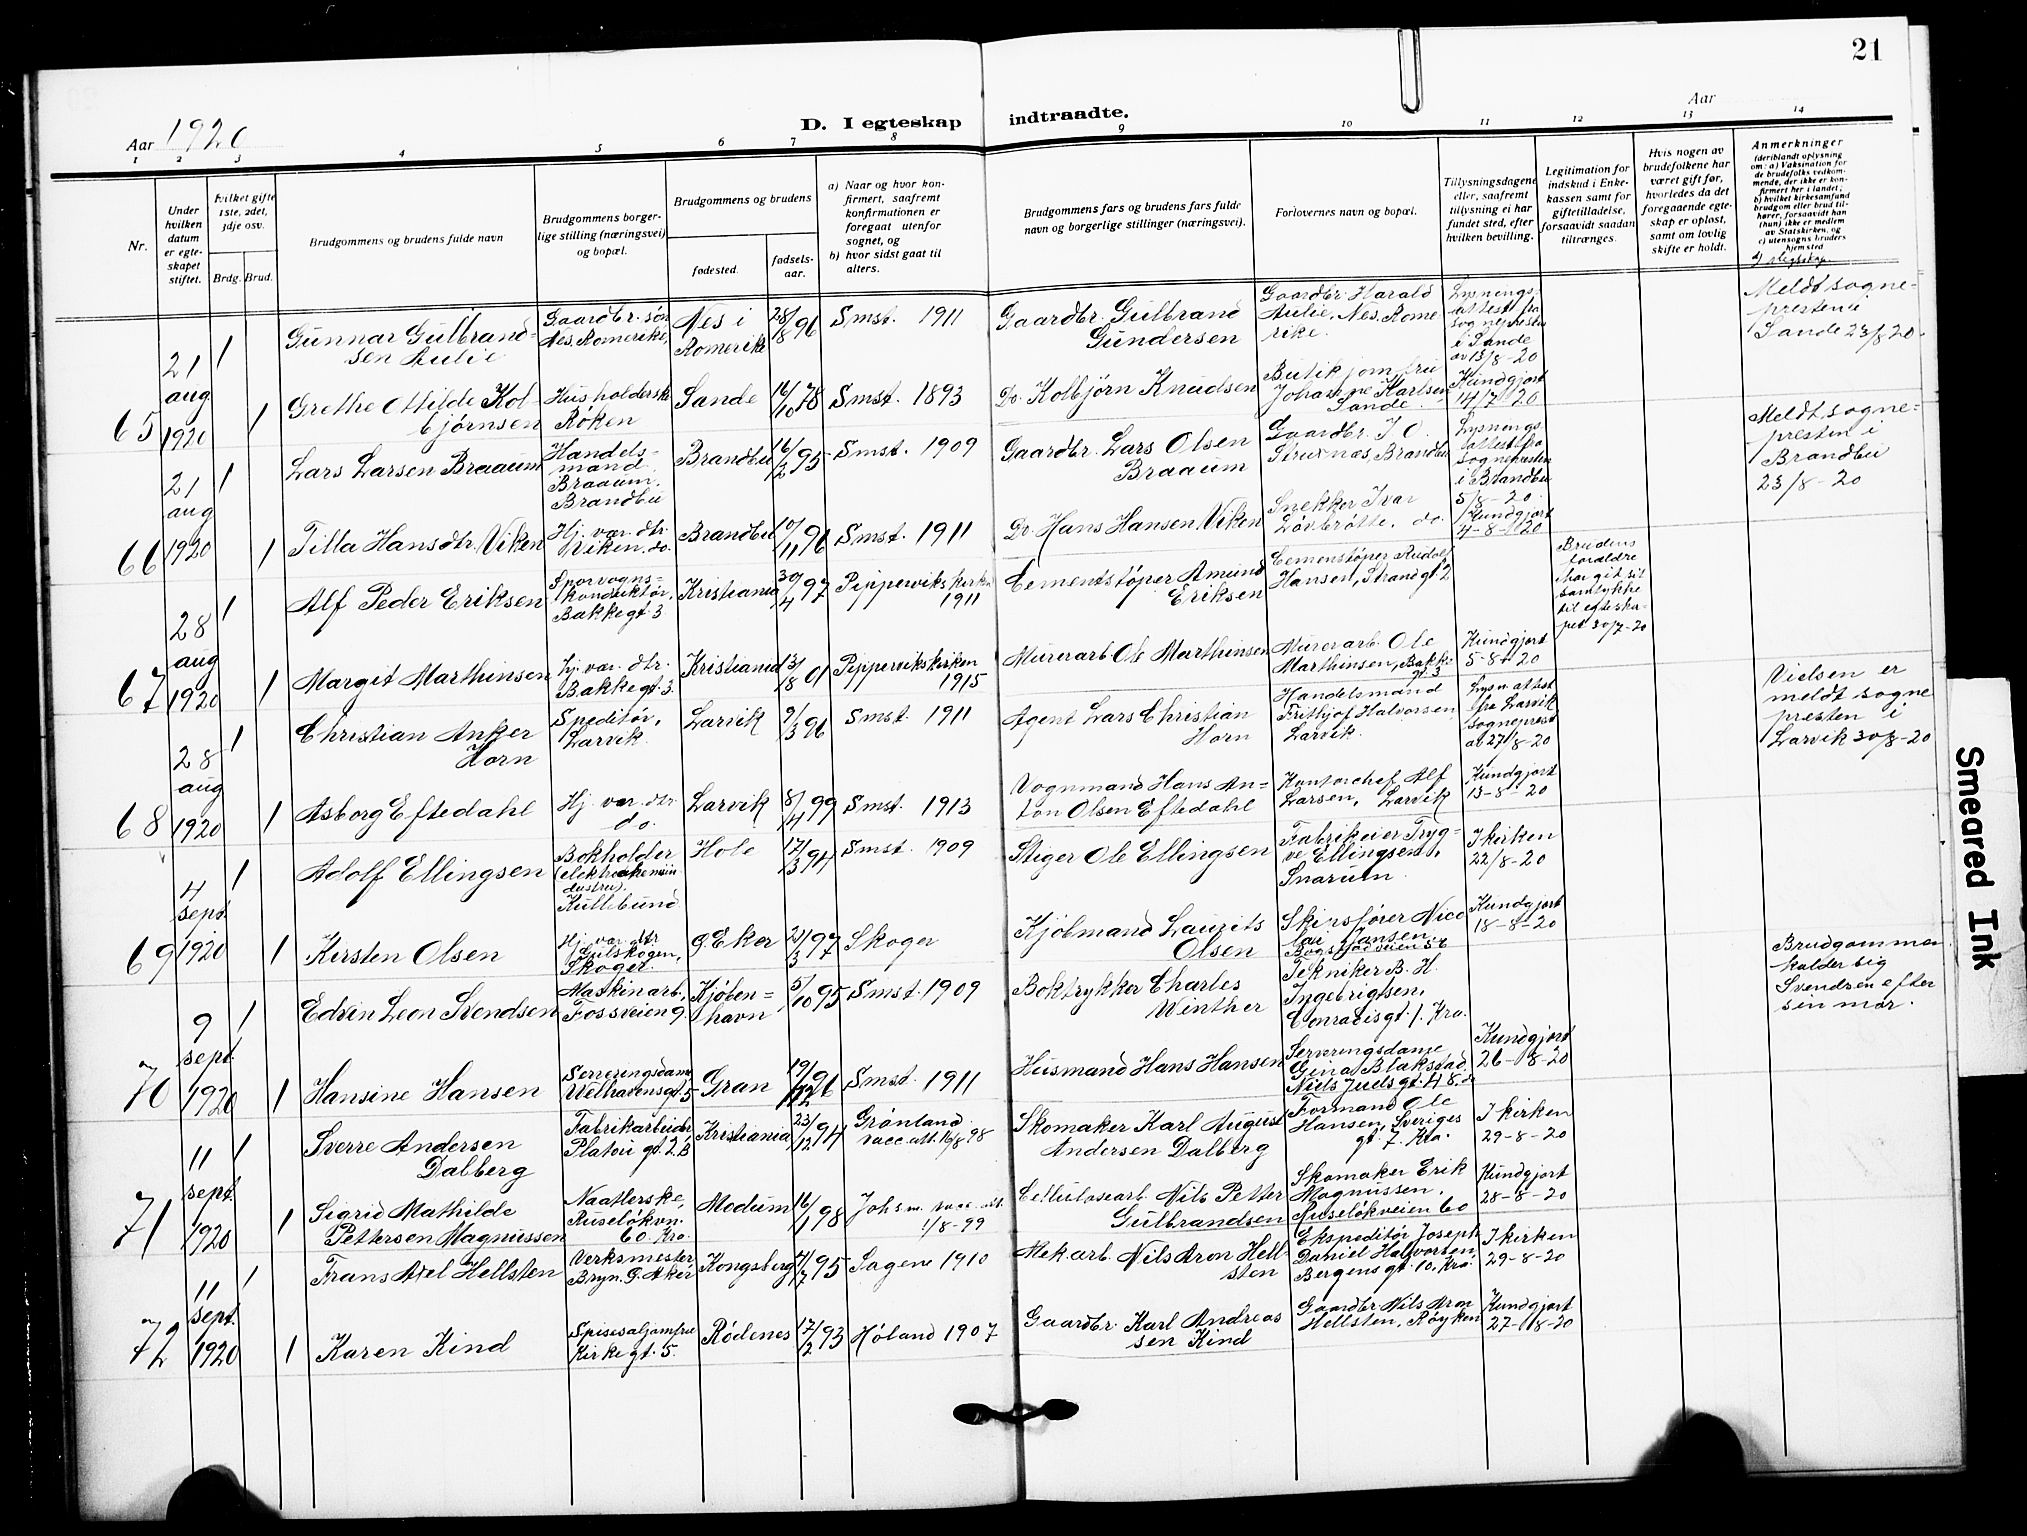 21
Aar 1920
D. I egteskap indtraadte.
Aar
1 2 3 4 5 6 7 8 9 10 11 12 13 14
Nr.
Under
hvilken
datum
er egte-
skapet
stiftet.
hvilket gifte
1ste, 2det,
3dje osv.
Brdg. Brud.
Brudgommens og brudens fulde navn
Brudgommens borger-
lige stilling (næringsvei)
og bopæl.
Brudgommens og brudens
fødested.
fødsels-
aar.
a) Naar og hvor kon-
firmert, saafremt
konfirmationen er
foregaat utenfor
sognet, og
b) hvor sidst gaat til
alters.
Brudgommens fars og brudens fars fulde
navn og borgerlige stillinger (næringsvei).
Forlovernes navn og bopæl.
Tillysningsdagene
eller, saafremt
tillysning ei har
fundet sted, efter
hvilken bevilling.
Legitimation for
indskud i Enke-
kassen samt for
giftetilladelse,
forsaavidt saadan
tiltrænges.
Hvis nogen av
brudefolkene har
været gift før,
hvorledes da det
foregaaende egte-
skap er opløst,
samt om lovlig
skifte er holdt.
Anmerkninger
(deriblandt oplysning
om: a) Vaksination for
de brudefolks vedkom-
mende, der ikke er kon-
firmert her i landet;
b) hvilket kirkesamfund
brudgom eller brud til-
hører, forsaavidt han
(hun) ikke er medlem
av Statskirken, og
c) utensogns bruders
hjemsted
d) slegtskap
65
21
aug
1920
1
Gunnar Gulbrand-
sen Aulie
Gaardbr. søn
Nes, Romerike,
Nes i
Romerike
28/8 96
Smst. 1911
Gaardbr. Gulbrand
Gundersen
Gaardbr. Harald
Aulie, Nes, Rome
rike.
Lysnings-
attest fra
sognepresten
i Sande
av 13/8-20
Meldt sogne-
presten i
Sande 23/8 20.
1
Grethe Otilde Kol-
bjørnsen
Husholderske
Røken
Sande
16/10 78
Smst. 1893
Do. Kolbjørn Knudsen
Butikjomfru
Johanne Karlsen,
Sande.
Kundgjort
14/7 20
66
21
aug
1920
1
Lars Larsen Braaum
Handels-
mand
Braaum,
Brandbu
Brandbu
16/2 95
Smst. 1909
Gaardbr. Lars Olsen
Braaum
Gaardbr. I O.
Struxnæs, Brandbu
Lysnings
attest fra
sognepresten
i Brandbu
5/8-20.
Meldt sogne-
presten i
Brandbu
23/8-20
1
Tilla Hansdtr. Viken
Hj. var. dtr.
Viken, do.
Brandbu
10/11 96
Smst. 1911
Do. Hans Hansen Viken
Snekker Ivar
Løvbrøtte, do.
Kundgjort
4-8-1920
67
28
aug
1920
1
Alf Peder Eriksen
Sporvogns-
konduktør,
Bakkegt. 3
Kristiania
30/4 97
Pipperviks kirke
1911
Cementstøper Amund
Eriksen
Cementstøper Rudolf
Hansen, Strandgt 2
Brudens
foreldre
har git sit
samtykke
til egteska-
pet 30/7-20
1
Margit Marthinsen
Hj. var. dtr.
Bakkegt. 3.
Kristiania
13/8 01
Pipperviks kirken
1915
Murerarb. Ole Marthinsen
Murerarb. Ole
Marthinsen, Bakke-
gt. 3
Kundgjort
5-8-20
68
28
aug
1920
1
Christian Anker
Horn
Speditør,
Larvik.
Larvik
9/3 96
Smst. 1911
Agent Lars Christian
Horn
Handelsmand
Frithjof Halvorsen
Larvik.
Lysn. attest
fra Larvik
sogneprest
av 27/8-20
Vielsen er
meldt sogne
presten i
Larvik 30/8-20
1
Asborg Eftedahl
Hj. var. dtr.
do.
Larvik
8/4 99
Smst. 1913
Vognmand Hans An-
ton Olsen Eftedahl
Kontorchef Alf
Larsen, Larvik
Kundgjort
13-8-20
69
4
sept.
1920
1
Adolf Ellingsen
Bokholder
(elektrokemisk in
dustri).
Kullebund
Hole
17/3 94
Smst. 1909
Stiger Ole Ellingsen
Fabrikeier Tryg-
ve Ellingsen,
Snarum
I kirken
22/8-20
1
Kirsten Olsen
Hj. var. dtr
Gulskogen,
Skoger.
Ø. Eker
21/3 97
Skoger
Kjøbmand Laurits
Olsen
Skipsfører Nico
lai Jansen
Bogstadveien 56
Kundgjort
18-8-20
70
9
sept.
1920
1
Edvin Leon Svendsen
Maskinarb,
Fossveien 9.
Kjøben-
havn
5/10 95
Smst. 1909
Boktrykker Charles
Winther
Tekniker B. H.
Ingebrigtsen,
Conradisgt. 1. Kra.
Brudgommen
kalder sig
Svendsen efter
sin mor.
1
Hansine Hansen
Serveringsdame
Welhavensgt. 5
Gran
19/12 96
Smst. 1911
Husmand Hans Hansen
Serveringsdame
Gina Blakstad
Niels Juelsgt. 48.
Kundgjort
26-8-20
71
11
sept.
1920
1
Sverre Andersen
Dalberg
Fabrikarbeider
Platou gt. 2 B
Kristiania
23/12 94
Grønland
vacc. att. 16/8 98
Skomaker Karl August
Andersen Dalberg
Formand Ole
Hansen, Sveriges
gt. 7. Kra.
I kirken
29-8-20
1
Sigrid Mathilde
Pettersen Magnussen
Naatlerske,
Ruseløkvn.
60. Kra.
Modum
16/1 98
Johs m. vacc. att.
1/8-99
Cellulosearb. Nils Petter
Gulbrandsen
Skomaker Erik
Magnussen,
Ruseløkveien 60
Kundgjort
28-8-20
72
11
sept.
1920
1
Frans Axel Hellsten
Verksmester
Bryn. Ø. Aker
Kongsberg
11/7 95
Sagene 1910
Mek. arb. Nils Aron Hell-
sten
Ekspeditør Joseph
Daniel Halvorsen,
Bergensgt. 10. Kra.
I kirken
29-8-20
1
Karen Kind
Spisesaljomfru
Kirkegt. 5.
Rødenes
17/2 93
Høland 1907
Gaardbr. Karl Andreas
sen Kind
Gaardbr. Nils Aron
Hellsten, Røyken
Kundgjort
27-8-20
Smeared Ink